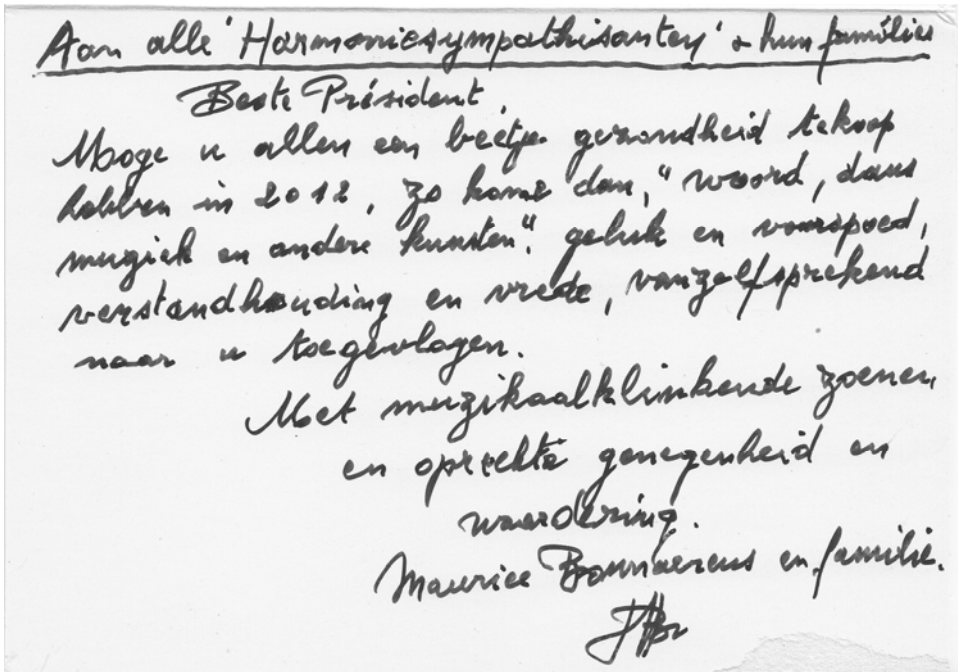 Aan alle 'Harmoniesympathisanten' & hun families
Beste Président,
Moge u allen een beetje gezondheid tekoop
hebben in 2012, zo kome dan, "woord, dans
muziek en andere kunsten", geluk en voorspoed,
verstandhouding en vrede, vanzelfsprekend
naar u toegevlogen.
Met muzikaalklinkende zoenen,
en oprechte genegenheid en
waardering.
Maurice en familie.